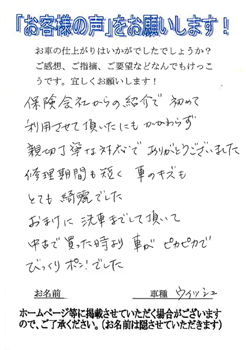 「お客様の声」をお願いします！
お車の仕上がりはいかがでしたでしょうか？
ご感想、ご指摘、ご要望などなんでもけっこ
うです。宜しくお願いします！
保険会社からの紹介で 初めて
利用させて頂いたにもかかわらず
親切丁寧な対応で ありがとうございました
修理期間も短く 車のキズも
とても 綺麗でした
おまけに 洗車までして頂いて
中古で買った時より 車が ピカピカで
びっくりポン！でした
お名前 車種 ウィッシュ
ホームページ等に掲載させていただく場合がございます
ので、ご了承ください。（お名前は隠させていただきます）